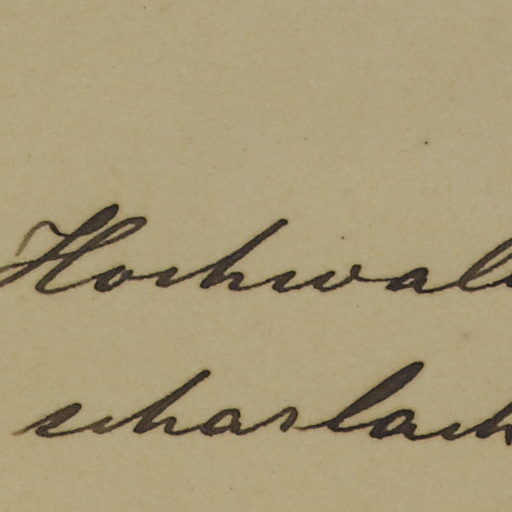 Hochwal
scharlach